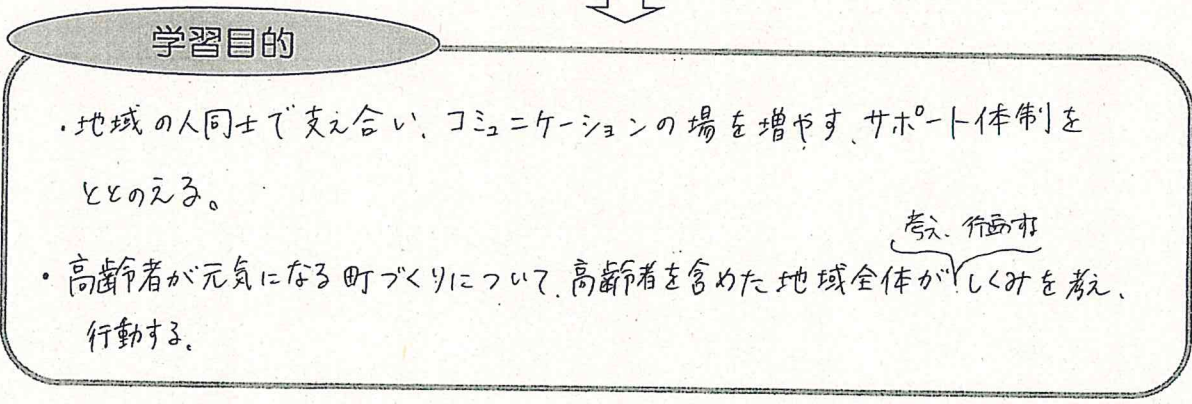 学習目的
・地域の人同士で支え合い、コミュニケーションの場を増やす、サポート体制を
ととのえる。
考え、行動する
・高齢者が元気になる町づくりについて、高齢者を含めた地域全体がしくみを考え、
行動する。